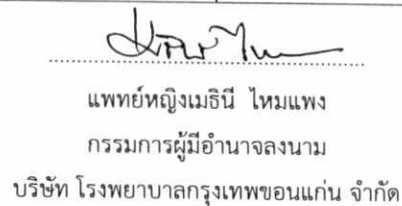 แพทย์หญิงเมธินี ไหมแพง
กรรมการผู้มีอำนาจลงนาม
บริษัท โรงพยาบาลกรุงเทพขอนแก่น จำกัด